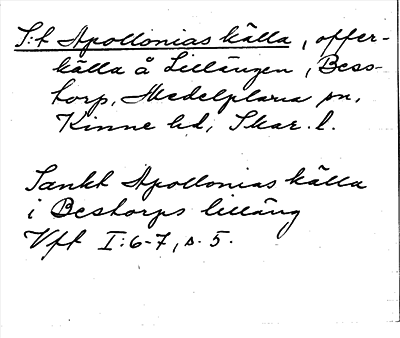 S:t Apollonias källa, offer-
källa å Lillängen, Bess-
torp, Medelplana sn,
Kinne hd, Skar. l.
Sankt Apollonias källa
i Bestorps lilläng
Vft I:6-7, s. 5.